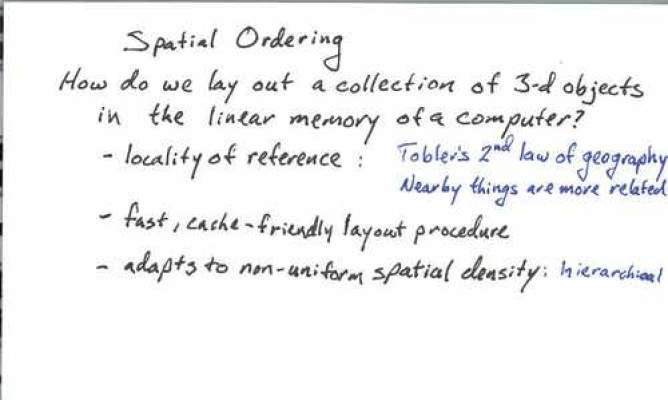 Spatial Ordering
How do we lay out a collection of 3-d objects
in the linear memory of a computer?
- locality of reference : Tobler's 2nd law of geography
Nearby things are more related
- fast, cache-friendly layout procedure
- adapts to non-uniform spatial density: hierarchical